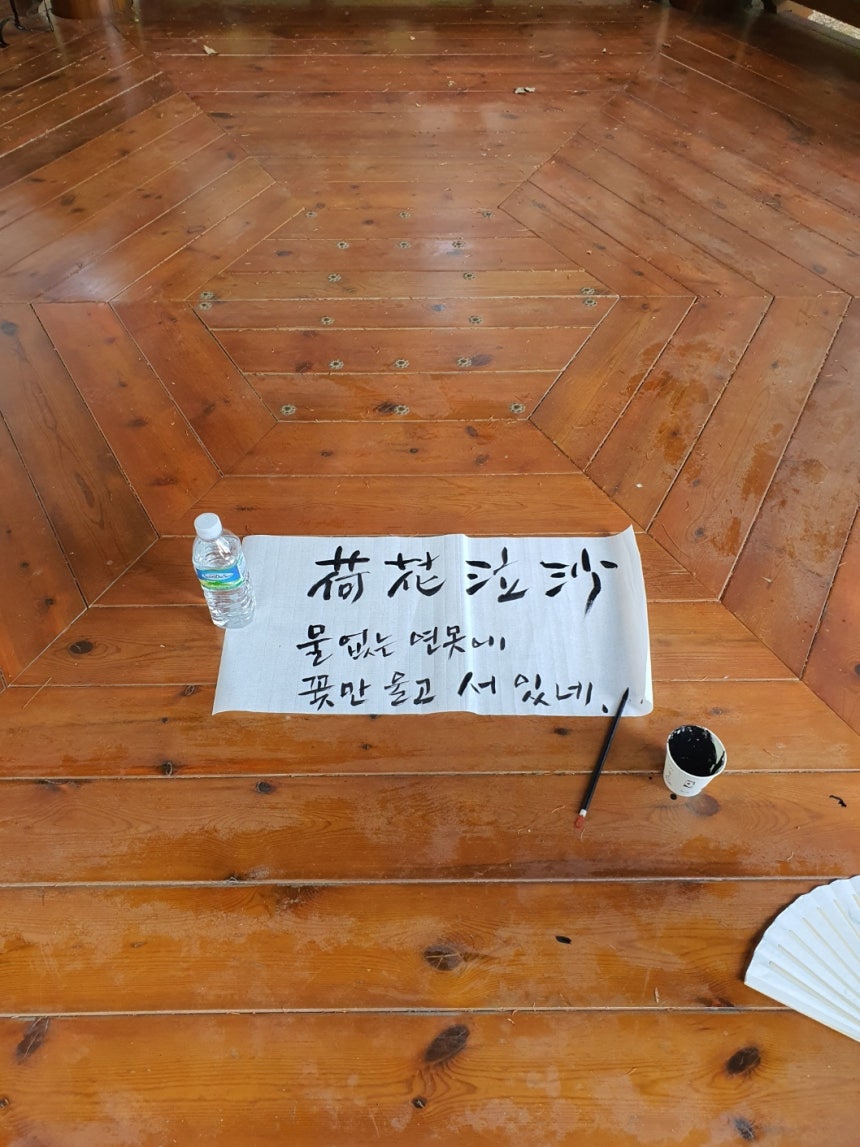 荷花泣
물 없는 연못에
꽃만 울고 서 있네.